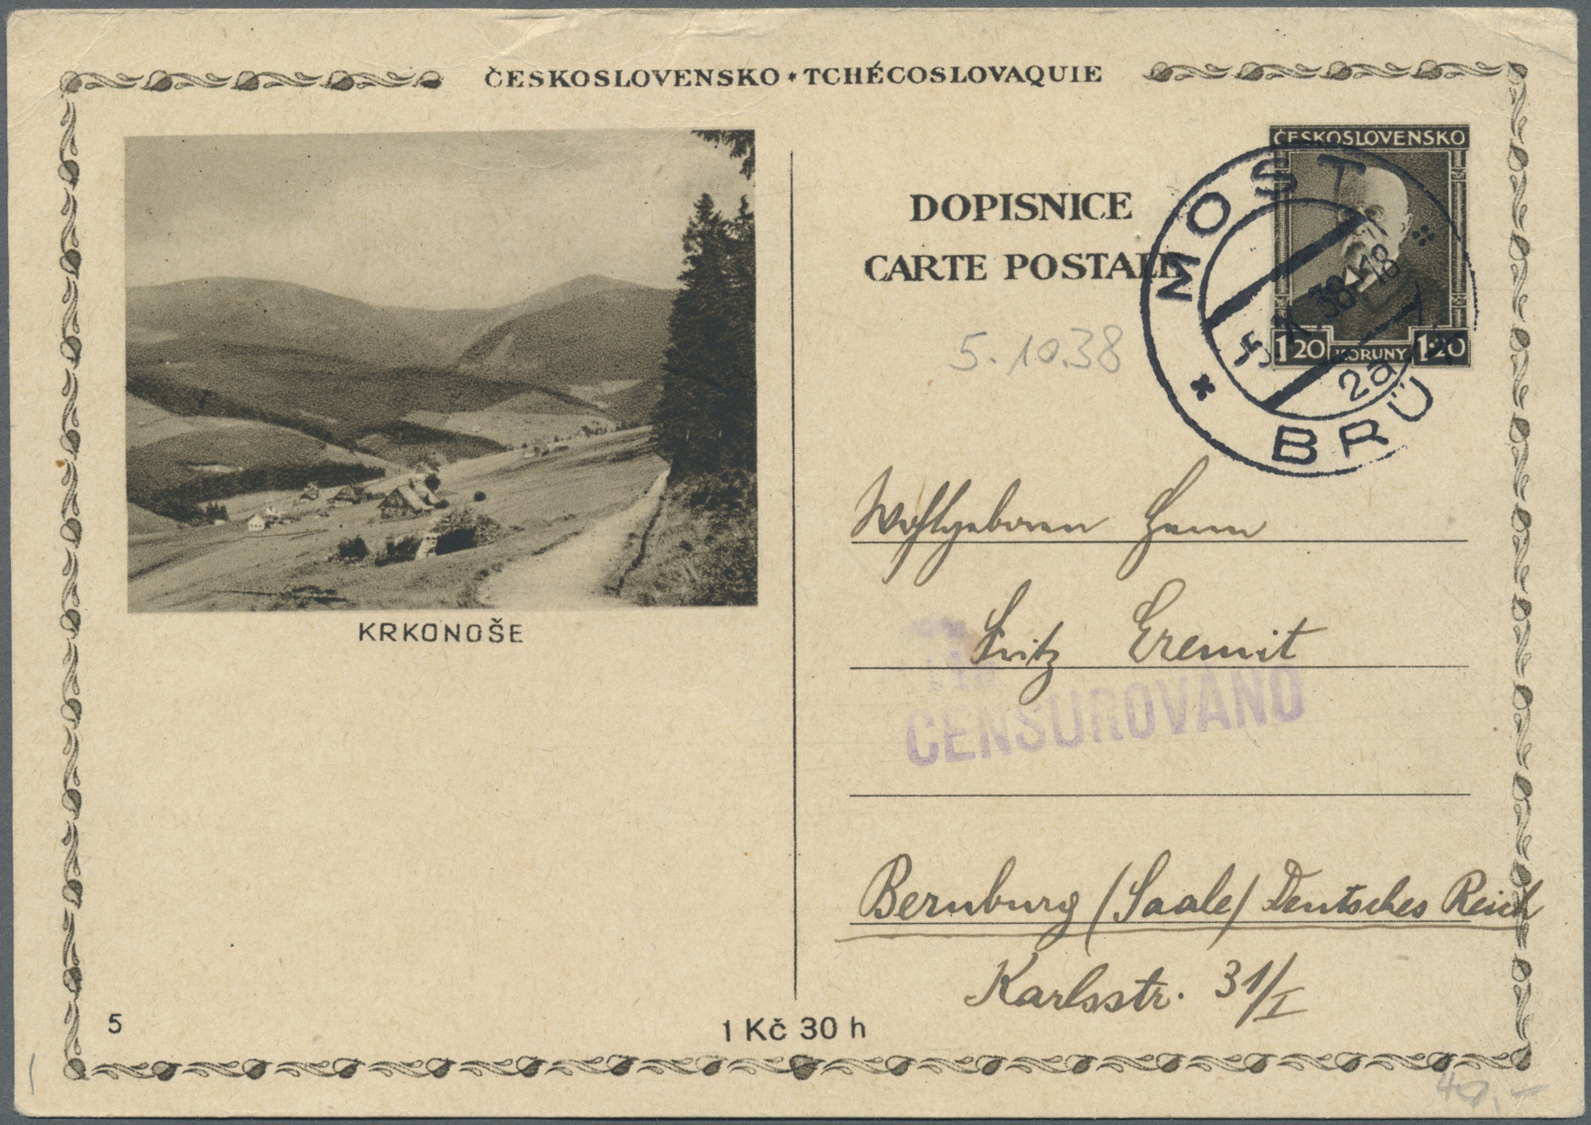 ČESKOSLOVENSKO * TCHÉCOSLOVAQUIE
KRKONOŠE
5
1 Kč 30 h
DOPISNICE
CARTE POSTALE
ČESKOSLOVENSKO
1·20 KORUNY 1·20
MOST
BRÜX
2a
5.10.38
Wohlgeboren Herrn
Fritz Eremit
CENSUROVÁNO
Bernburg (Saale) Deutsches Reich
Karlsstr. 31/I
40.-